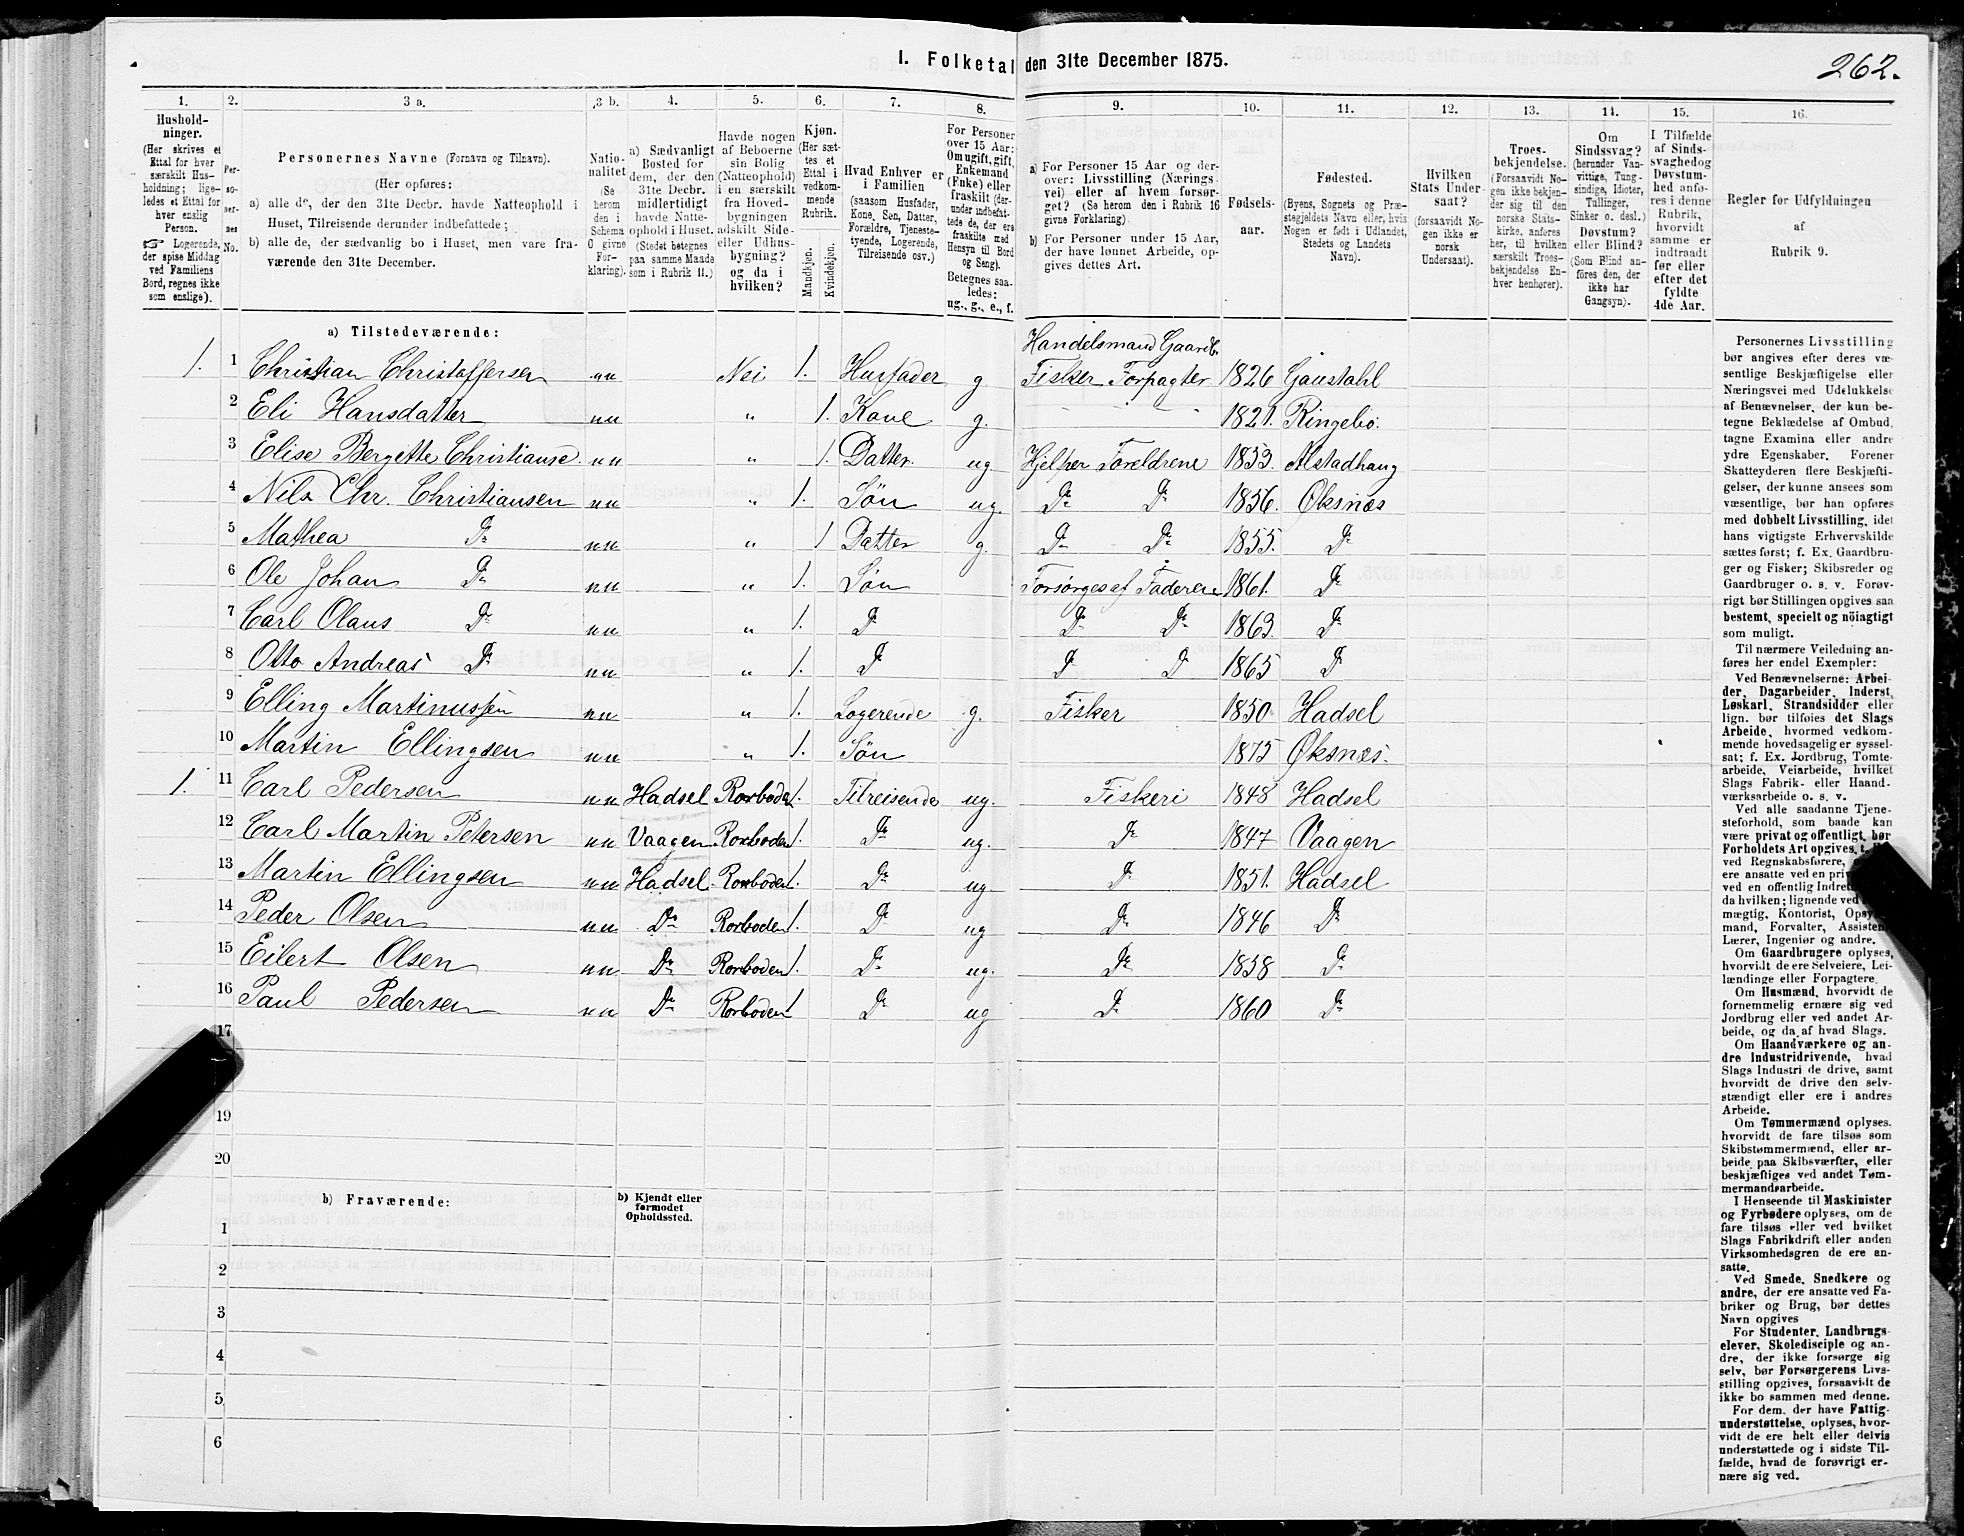 I. Folketal den 31te December 1875.
262.
1.
Hushold-
ninger.
(Her skrives et
Ettal for hver
særskilt Hus-
holdning; lige-
ledes et Ettal for
hver enslig
Person.
☞ Logerende,
der spise Middag
ved Familiens
Bord, regnes ikke
som enslige).
2.
Per-
so-
ner-
nes
No.
3 a.
Personernes Navne (Fornavn og Tilnavn).
(Her opføres:
a) alle de, der den 31te Decbr. havde Natteophold i
Huset, Tilreisende derunder indbefattede;
b) alle de, der sædvanlig bo i Huset, men vare fra-
værende den 31te December.
3 b.
Natio-
nalitet
(Se
herom
den i
Schema
O givne
For-
klaring).
4.
a) Sædvanligt
Bosted for
dem, der den
31te Decbr.
midlertidigt
havde Natte-
ophold i Huset.
(Stedet betegnes
paa samme Maade
som i Rubrik 11.)
5.
Havde nogen
af Beboerne
sin Bolig
(Natteophold)
i en særskilt
fra Hoved-
bygningen
adskilt Side-
eller Udhus-
bygning?
og da i
hvilken?
6.
Kjøn.
(Her sæt-
tes et
Ettal i
vedkom-
mende
Rubrik.
Mandkjøn.
Kvindekjøn.
7.
Hvad Enhver er
i Familien
(saasom Husfader,
Kone, Søn, Datter,
Forældre, Tjeneste-
tyende, Logerende,
Tilreisende osv.)
8.
For Personer
over 15 Aar:
Om ugift, gift,
Enkemand
(Enke) eller
fraskilt (der-
under indbefat-
tede de, der ere
fraskilte med
Hensyn til Bord
og Seng).
Betegnes saa-
ledes:
ug., g., e., f.
9.
a) For Personer 15 Aar og der-
over: Livsstilling (Nærings-
vei) eller af hvem forsør-
get? (Se herom den i Rubrik 16
givne Forklaring).
b) For Personer under 15 Aar,
der have lønnet Arbeide, op-
gives dettes Art.
10.
Fødsels-
aar.
11.
Fødested.
(Byens, Sognets og Præ-
stegjeldets Navn eller, hvis
Nogen er født i Udlandet,
Stedets og Landets
Navn).
12.
Hvilken
Stats Under-
saat?
(forsaavidt No-
gen ikke er
norsk
Undersaat).
13.
Troes-
bekjendelse.
(Forsaavidt No-
gen ikke bekjen-
der sig til den
norske Stats-
kirke, anføres
her, til hvilken
særskilt Troes-
bekjendelse En-
hver henhører).
14.
Om
Sindssvag?
(herunder Van-
vittige, Tung-
sindige, Idioter,
Tullinger,
Sinker o. desl.)
Døvstum?
eller Blind?
(Som Blind an-
føres den, der
ikke har
Gangsyn).
15.
I Tilfælde
af Sinds-
svaghed og
Døvstum-
hed anfø-
res i denne
Rubrik,
hvorvidt
samme er
indtraadt
før eller
efter det
fyldte
4de Aar.
16.
Regler for Udfyldningen
af
Rubrik 9.
a) Tilstedeværende:
Handelsmand Gaardb.
1. 1 Christian Christoffersen nn Nei 1. Husfader g Fisker Forpagter 1826 Gaustahl
2 Eli Hansdatter nn " 1. Kone g. - - - 1821. Ringebø.
3 Elise Bergette Christianse. nn " 1 Datter. ug. Hjelper Foreldrene 1853. Alstadhaug
4 Nils Chr. Christiansen nn " 1. Søn ug. Do Do 1856. Øksnæs
5 Mathea Do nn " 1 Datter g. Do Do 1855. Do
6 Ole Johan Do nn " 1. Søn Forsørges af Faderen 1861. Do
7 Carl Olaus Do nn " 1. Do Do Do 1863. Do
8 Otto Andreas Do nn " 1. Do Do Do 1865 Do
9 Elling Martinussen nn " 1. Logerende g. Fisker 1850 Hadsel
10 Martin Ellingsen nn " 1. Søn 1875 Øksnæs.
1. 11 Carl Pedersen nn Hadsel Rorboden 1. Tilreisende ug. Fiskeri 1848 Hadsel
12 Carl Martin Petersen nn Vaagen Rorboden 1. Do ug. Do 1847 Vaagen
13 Martin Ellingsen nn Hadsel. Rorboden 1. Do ug Do 1851. Hadsel
14 Peder Olsen nn Do Rorboden 1. Do ug Do 1846 Do
15 Eilert Olsen nn Do Rorboden 1. Do ug. Do 1858 Do
16 Paul Pedersen nn Do Rorboden 1 Do ug Do 1860 Do
17
19
20
b) Fraværende:
b) Kjendt eller
formodet
Opholdssted.
1
2
3
4
5
6
Personernes Livsstilling
bør angives efter deres væ-
sentlige Beskjæftigelse eller
Næringsvei med Udelukkelse
af Benævnelser, der kun be-
tegne Beklædelse af Ombud,
tagne Examina eller andre
ydre Egenskaber. Forener
Skatteyderen flere Beskjæfti-
gelser, der kunne ansees som
væsentlige, bør han opføres
med dobbelt Livsstilling, idet
hans vigtigste Erhvervskilde
sættes først; f. Ex. Gaardbru-
ger og Fisker; Skibsreder og
Gaardbruger o. s. v. Forøv-
rigt bør Stillingen opgives saa
bestemt, specielt og nöiagtigt
som muligt.
Til nærmere Veiledning an-
føres her endel Exempler:
Ved Benævnelserne: Arbei-
der, Dagarbeider, Inderst,
Løskarl, Strandsidder eller
lign. bør tilføies det Slags
Arbeide, hvormed vedkom-
mende hovedsagelig er syssel-
sat; f. Ex. Jordbrug, Tomte-
arbeide, Veiarbeide, hvilket
Slags Fabrik- eller Haand-
værksarbeide o. s. v.
Ved alle saadanne Tjene-
steforhold, som baade kan
være privat og offentligt, bør
Forholdets Art opgives,
ved Regnskabsførere,
ere ansatte ved en
ved en offentlig
da hvilken; lignende ved
mægtig, Kontorist,
mand, Forvalter,
Lærer, Ingeniør og andre.
Om Gaardbrugere oplyses,
hvorvidt de ere Selveiere, Lei-
lændinge eller Forpagtere.
Om Husmænd, hvorvidt de
fornemmelig ernære sig ved
Jordbrug eller ved andet Ar-
beide, og da af hvad Slags.
Om Haandværkere og an-
dre Industridrivende, hvad
Slags Industri de drive, samt
hvorvidt de drive den selv-
stændigt eller ere i andres
Arbeide.
Om Tømmermænd oplyses,
hvorvidt de fare tilsøs som
Skibstømmermænd, eller ar-
beide paa Skibsværfter, eller
beskjæftiges ved andet Tøm-
mermandsarbeide.
I Henseende til Maskinister
og Fyrbødere oplyses, om de
fare tilsøs eller ved hvilket
Slags Fabrikdrift eller anden
Virksomhedsgren de ere an-
satte.
Ved Smede, Snedkere og
andre, der ere ansatte ved Fa-
briker og Brug, bør dettes
Navn opgives
For Studenter, Landbrugs-
elever, Skoledisciple og an-
dre, der ikke forsørge sig
selv, bør Forsørgerens Livs-
stilling opgives, forsaavidt de
ikke bo sammen med denne.
For dem, der have Fattig-
understøttelse, oplyses, hvor-
vidt de ere helt eller delvis
understøttede og i sidste Til-
fælde, hvad de forøvrigt er-
nære sig ved.